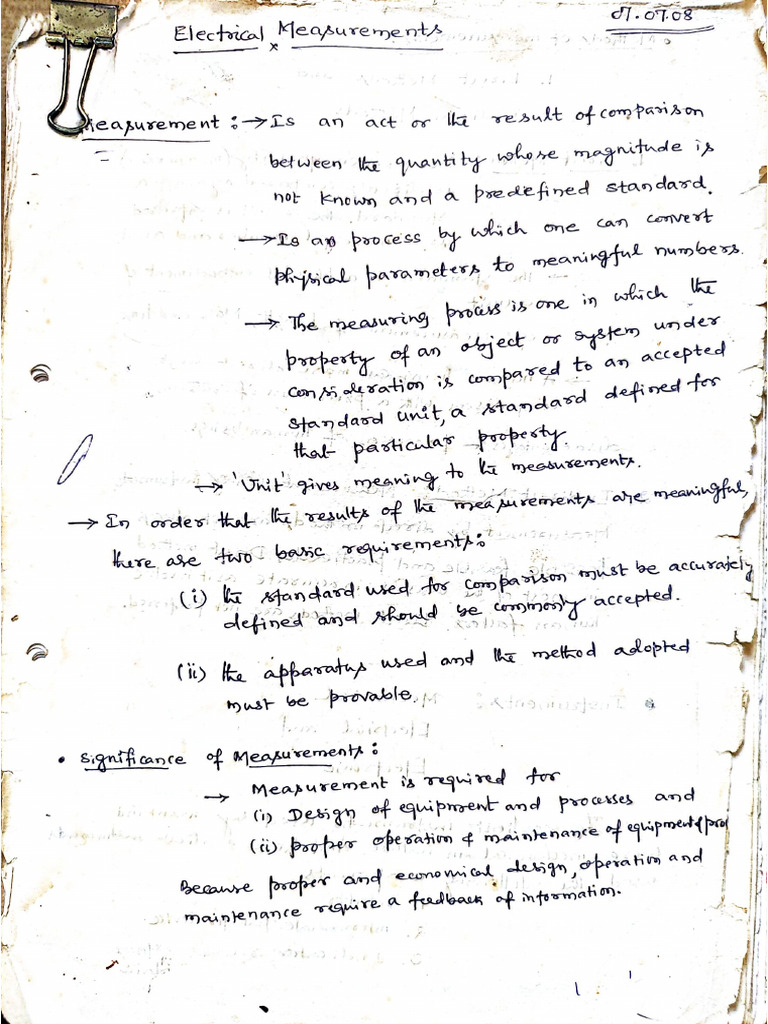 Electrical Measurements
07.07.08
Measurement :→ Is an act or the result of comparison
between the quantity whose magnitude is
not known and a predefined standard.
→ Is a process by which one can convert
physical parameters to meaningful numbers.
→ The measuring process is one in which the
property of an object or system under
consideration is compared to an accepted
standard unit, a standard defined for
that particular property.
→ 'Unit' gives meaning to the measurements.
→ In order that the results of the measurements are meaningful,
there are two basic requirements:
(i) the standard used for comparison must be accurately
defined and should be commonly accepted.
(ii) the apparatus used and the method adopted
must be provable.
• Significance of Measurements:
→ Measurement is required for
(i) Design of equipment and processes and
(ii) proper operation & maintenance of equipment &
Because proper and economical design, operation and
maintenance require a feedback of information.